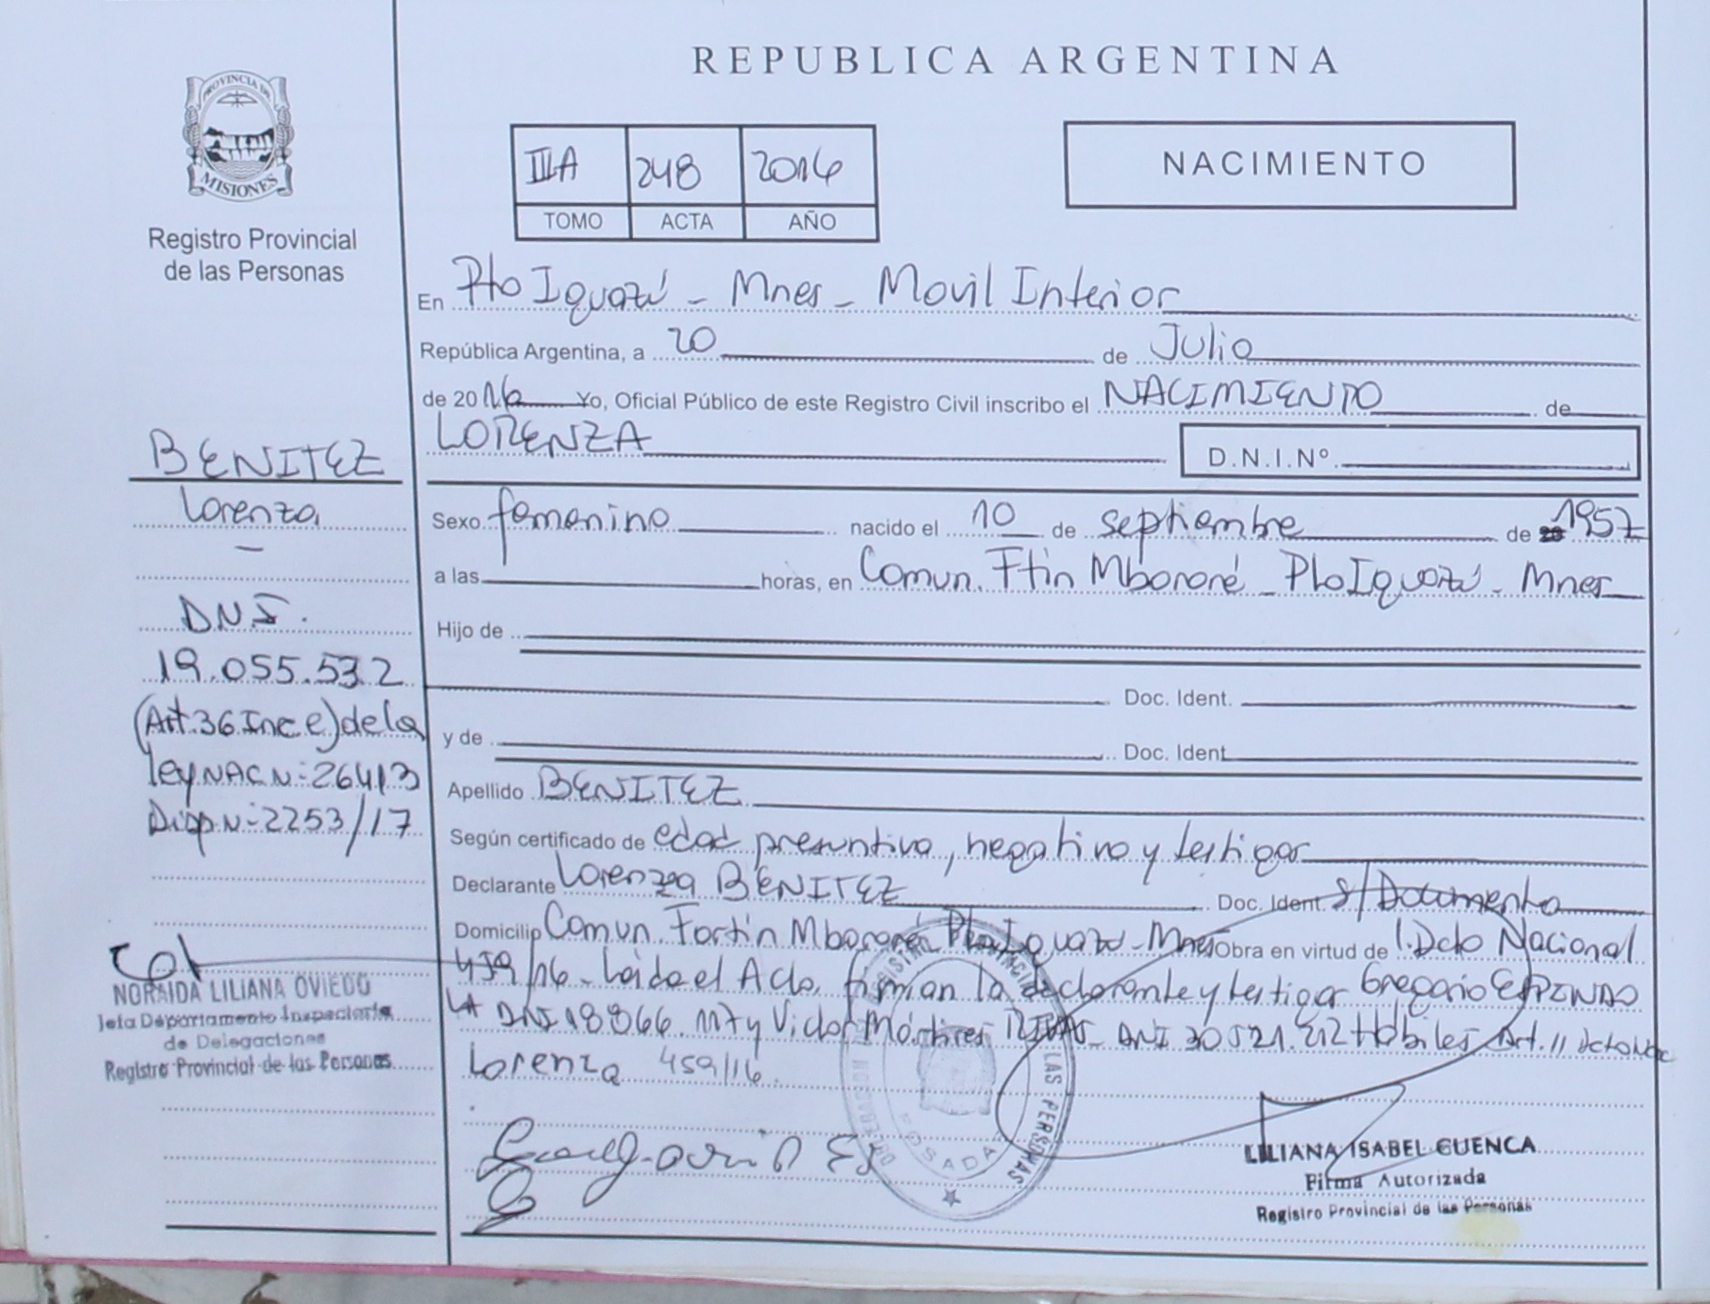 REPUBLICA ARGENTINA
PROVINCIA DE
MISIONES
Registro Provincial
de las Personas
IIIA 248 2016
TOMO ACTA AÑO
NACIMIENTO
En Pto Iguazú - Mnes - Movil Interior
República Argentina, a 20 de Julio
de 2016 Yo, Oficial Público de este Registro Civil inscribo el NACIMIENTO de
LORENZA D.N.I.Nº
Sexo femenino nacido el 10 de septiembre de 1957
a las horas, en Comun. Ftin Mbororé - Pto Iguazú - Mnes
Hijo de
Doc. Ident.
y de Doc. Ident.
Apellido BENITEZ
Según certificado de edad presuntiva, negativo y testigos
Declarante Lorenza BENITEZ Doc. Ident. s/Documento
Domicilio Comun. Fortín Mbororé Pto Iguazú - Mnes Obra en virtud de 1. Dcto Nacional
459/16 - Leído el Acta, firman la declarante y testigos Gregorio
DNI 18.866. y Victor Mártires RIVAS - DNI 30521.212 Hábiles Art. 11 dcto Nac
Lorenza 459/16
BENITEZ
Lorenza
—
DNI.
19.055.532
(Art.36 Inc e) de la
ley NAC N: 26413
Disp N: 2253/17
NORAIDA LILIANA OVIEDO
Jefa Departamento Inspectoría
de Delegaciones
Registro Provincial de las Personas
LAS PERSONAS
POSADAS
LILIANA ISABEL CUENCA
Firma Autorizada
Registro Provincial de las Personas